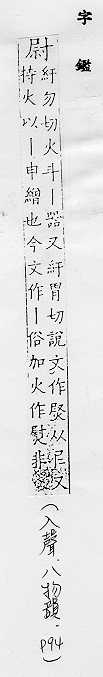 字鑑
尉 紆勿切火斗—器又紆胃切說文作㷉从𡰥又
持火以—申繒也今文作—俗加火作熨非
(入聲、八物韻、P94)